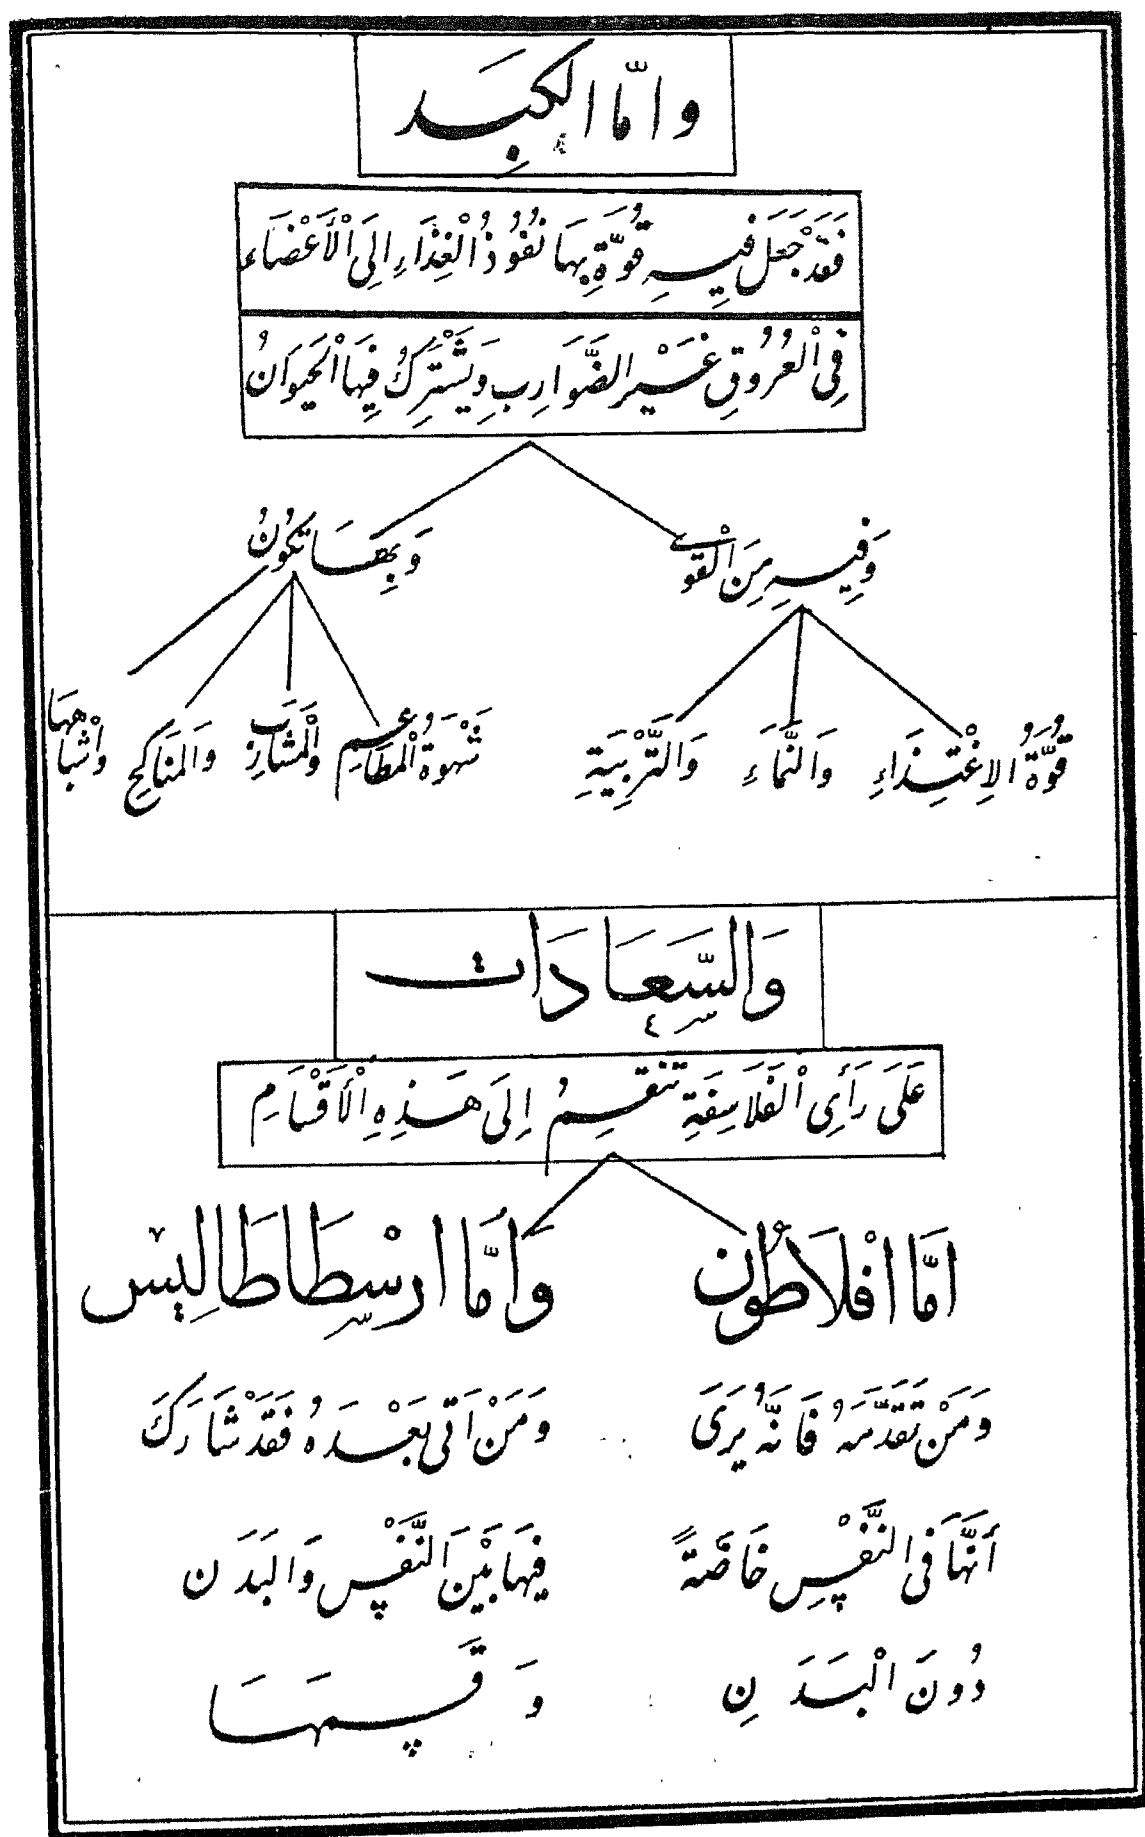 وَامَّا الكَبِد
فَقَدْ جَعَلَ فِيهِ قُوَّةٍ بِهَا نُفُوذُ الْغِذَاءِ إِلَى الْأَعْضَاء
فِى الْعُرُوقِ غَيْرِ الضَّوَارِبِ وَيَشْتَرِكُ فِيهَا الْحَيَوَانُ
وَفِيهِ مِنَ الْقُوے
وَبِهَا تَكُونُ
قُوَّةُ الِاغْتِذَاءِ وَالنَّمَاءِ وَالتَّرْبِيَةِ
شَهْوَةُ الْمَطَاعِمِ وَالْمَشَارِبِ وَالمَنَاكِحِ وَاشْبَاهِهَا
وَالسَّعَادَات
عَلَى رَأىِ الْفَلَاسِفَةِ تَنْقَسِمُ إِلَى هَذِهِ الْأَقْسَامِ
امَّا افْلَاطُون
وَمَنْ تَقَدَّمَهُ فَانَّهُ يَرَى
أَنَّهَا فى النَّفْسِ خَاصَّةً
دُونَ الْبَدَنِ
وَامَّا ارِسْطَاطَالِيْس
وَمَنْ اَتى بَعْدَهُ فَقَدْ شَارَكَ
فِيهَا بَيْنَ النَّفْسِ وَالبَدَن
وَقَسَمَهَا